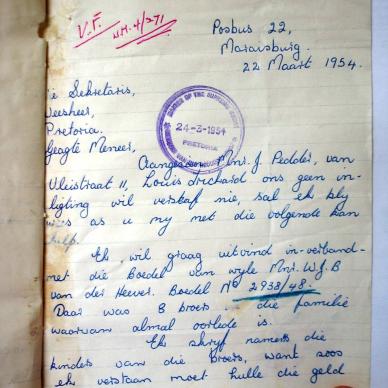 V.F. N.M. 4/271
Posbus 22,
Maraisburg.
22 Maart 1954.
Sekretaris,
Weesheer,
Pretoria.
Geagte Meneer,
24-3-1954
PRETORIA
Aangesien Mnr. J. Pedder, van
Vliestraat 11, Louis Trichard ons geen in-
ligting wil verskaf nie, sal ek bly
wees as u my met die volgende kan
help.
Ek wil graag uitvind in-verband-
met die Boedel van wyle Mnr. W.J.B
van der Heever. Boedel No 2938/48.
Daar was 8 broers die familie
waarvan almal oorlede is.
Ek skryf namens die
kinders van die broers, want soos
ek verstaan moet hulle die geld